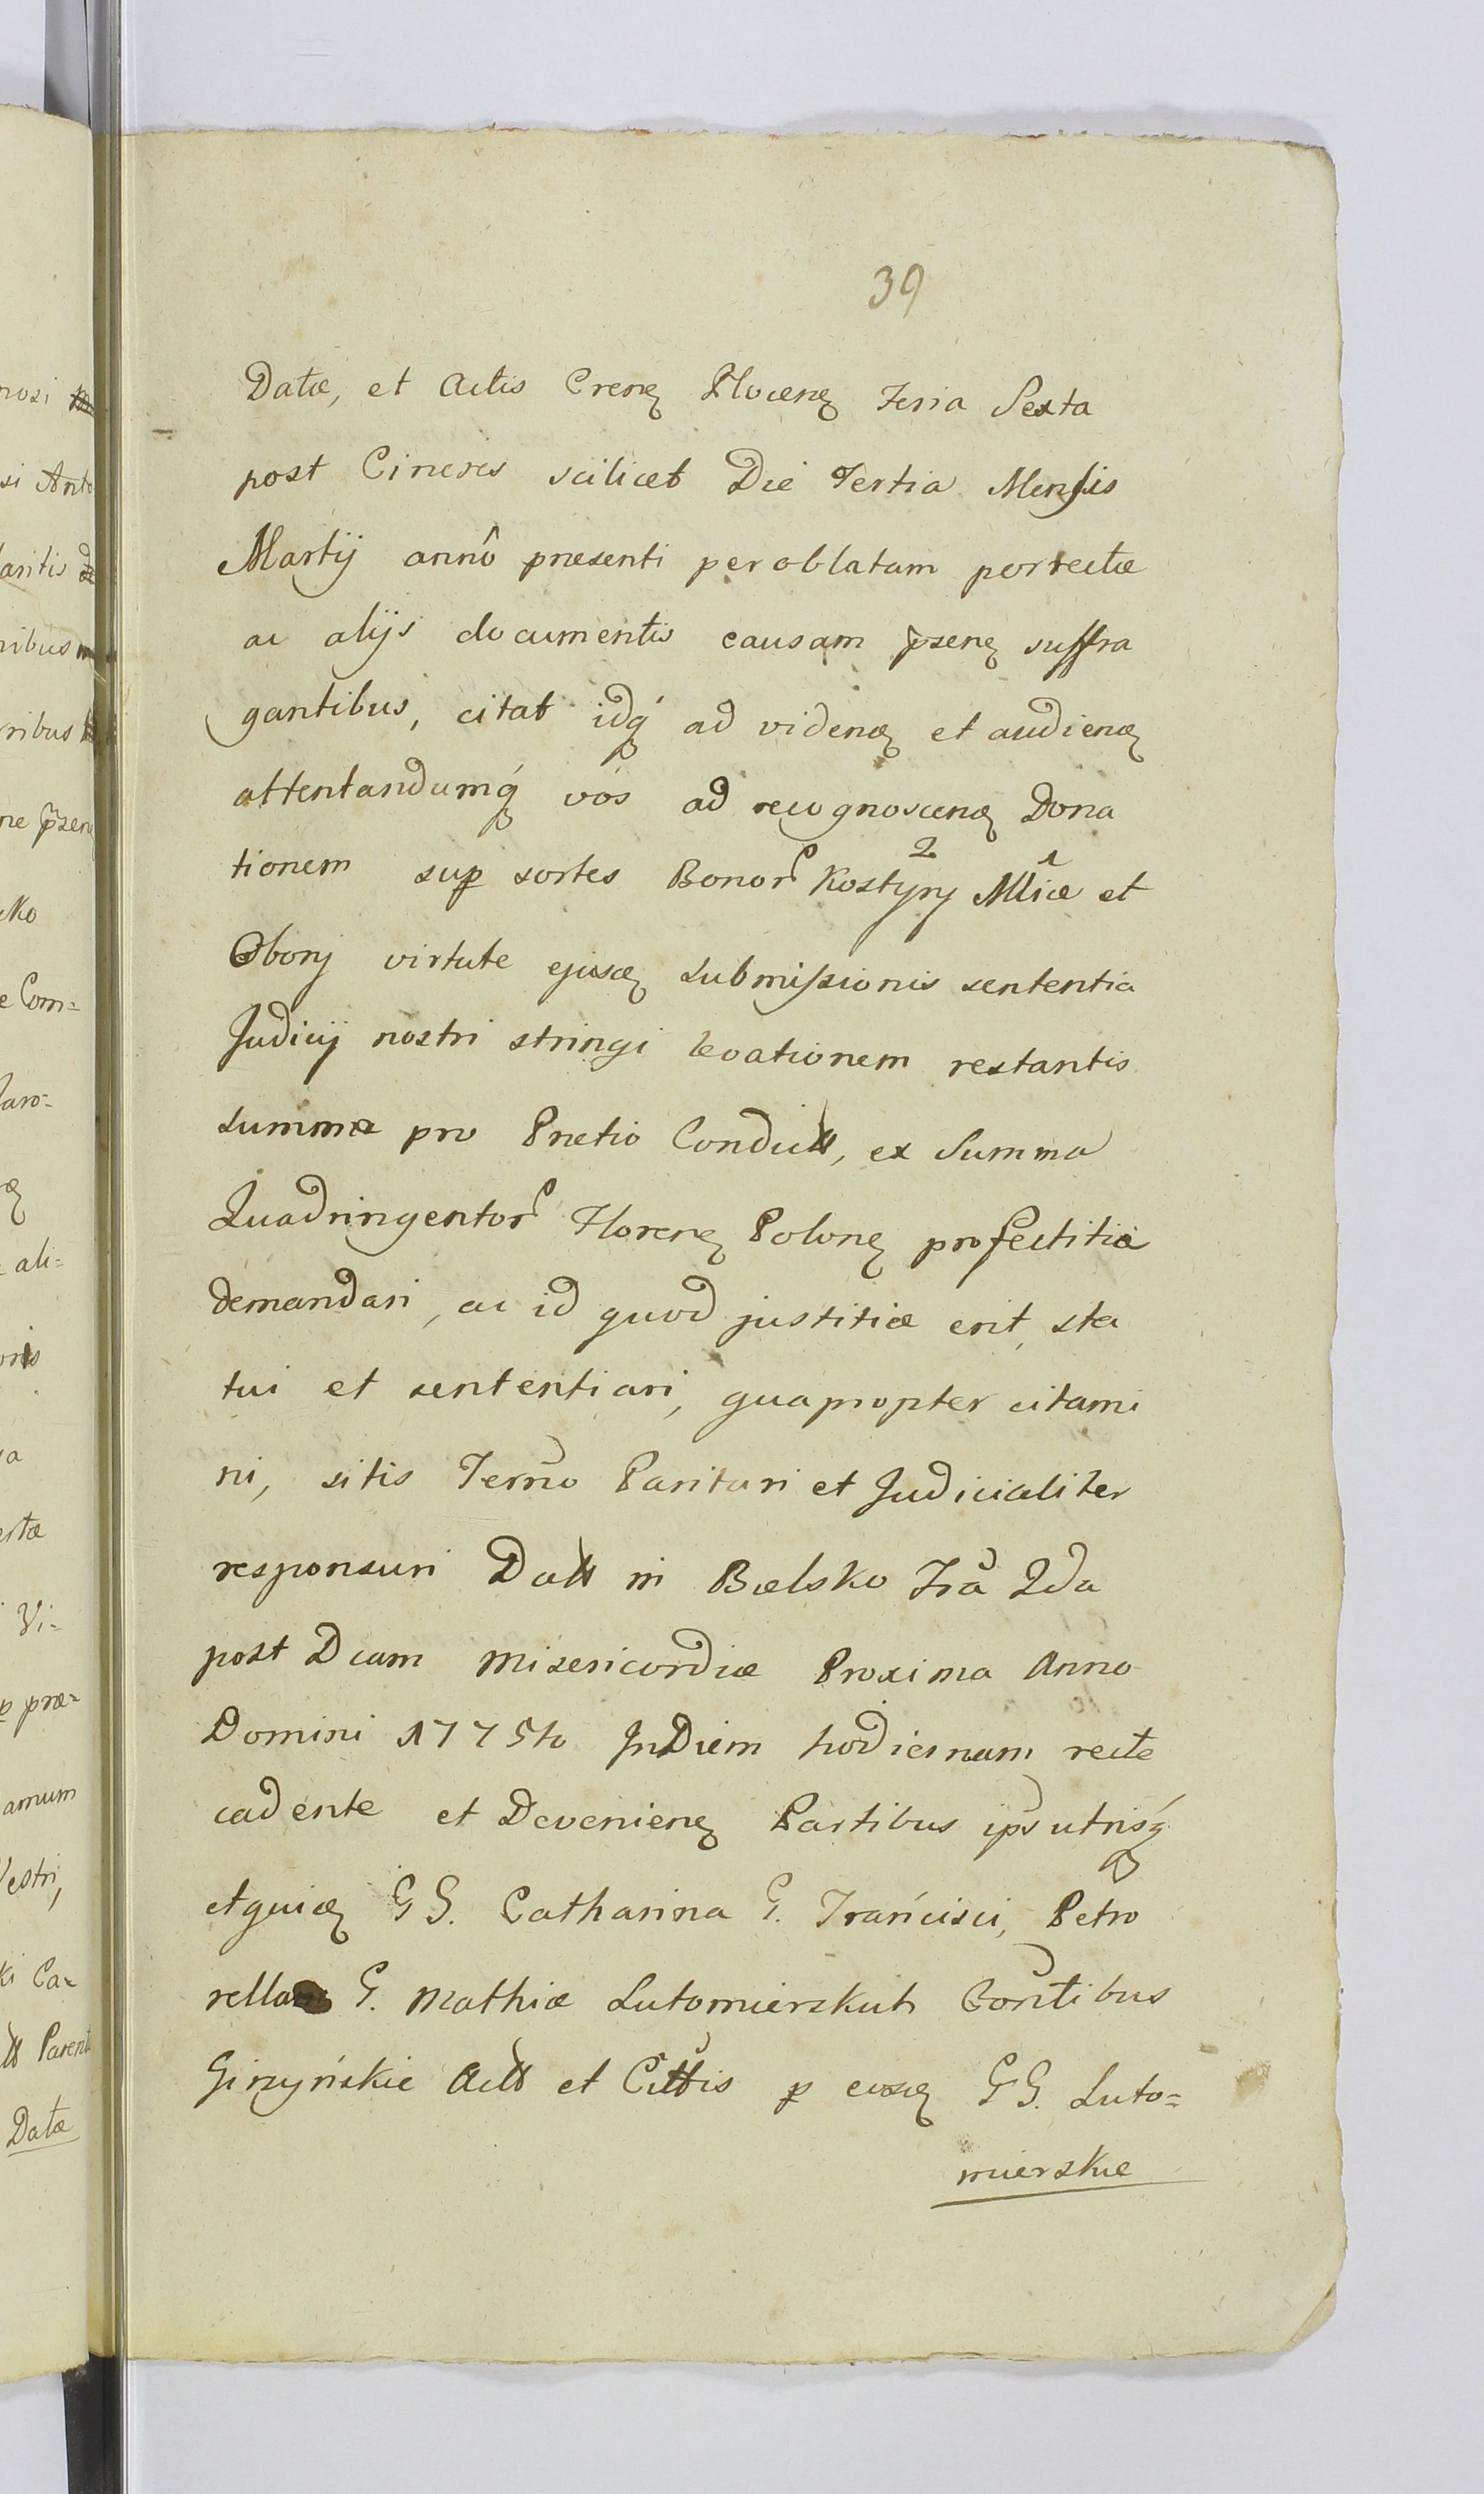 39
Datæ, et Actis Crenꝫ Plocenꝫ Feria Sexta
post Cineres scilicet Die Tertia Mensis
Martij annô præsenti per oblatam porrectæ
ac alijs documentis causam p̃zenꝫ suffra
gantibus, citat idq́ ad videnꝫ et audienꝫ
attentandumq́ vós ad recognoscenꝫ Dona
tionem sup sortes Bonor Kostyry 2 Mliæ 1 et
Obory virtute ejusꝫ submissionis sententia
Judicij nostri stringi levationem restantis
summæ pro Pretio Conductt, ex Summa
Quadringentor Florenꝫ Polonꝫ profectitiæ
demandari, ac id quod justitiæ erit, sta
tui et sententiari, quapropter citami
ni, sitis Termo Parituri et Judicialiter
responsuri Datt in Bielsko Fra 2da
post Dcam Misericordiæ Proxima Anno
Domini 1775to In Diem hodiernam recte
cadente et Devenienꝫ Partibus ips utrisq́
etquiꝫ GG. Catharina G. Francisci, Petro
rella G. Mathiæ Lutomierskich Contibus
Girzyńskie Actt et Cittis p eosꝫ GG. Luto=
mierskie
nosi
si Anto
aritis
nibus
ribus
ne p̃zen
cko
e Com=
Jaro=
ali=
oris
ia
Vi=
p præ=
amum
Vestri,
ki Ca=
Parent
Datæ